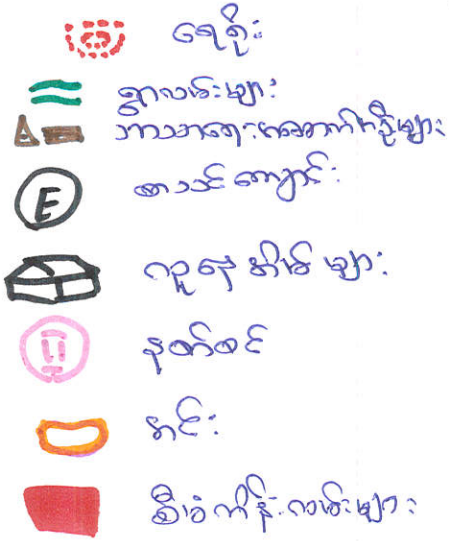 ရေစိုး
ရွာလမ်းများ
ဘာသာရေးအဆောက်အဦများ
E စာသင်ကျောင်း
လူနေအိမ်များ
နတ်စင်
အင်း
စီမံကိန်းလမ်းများ